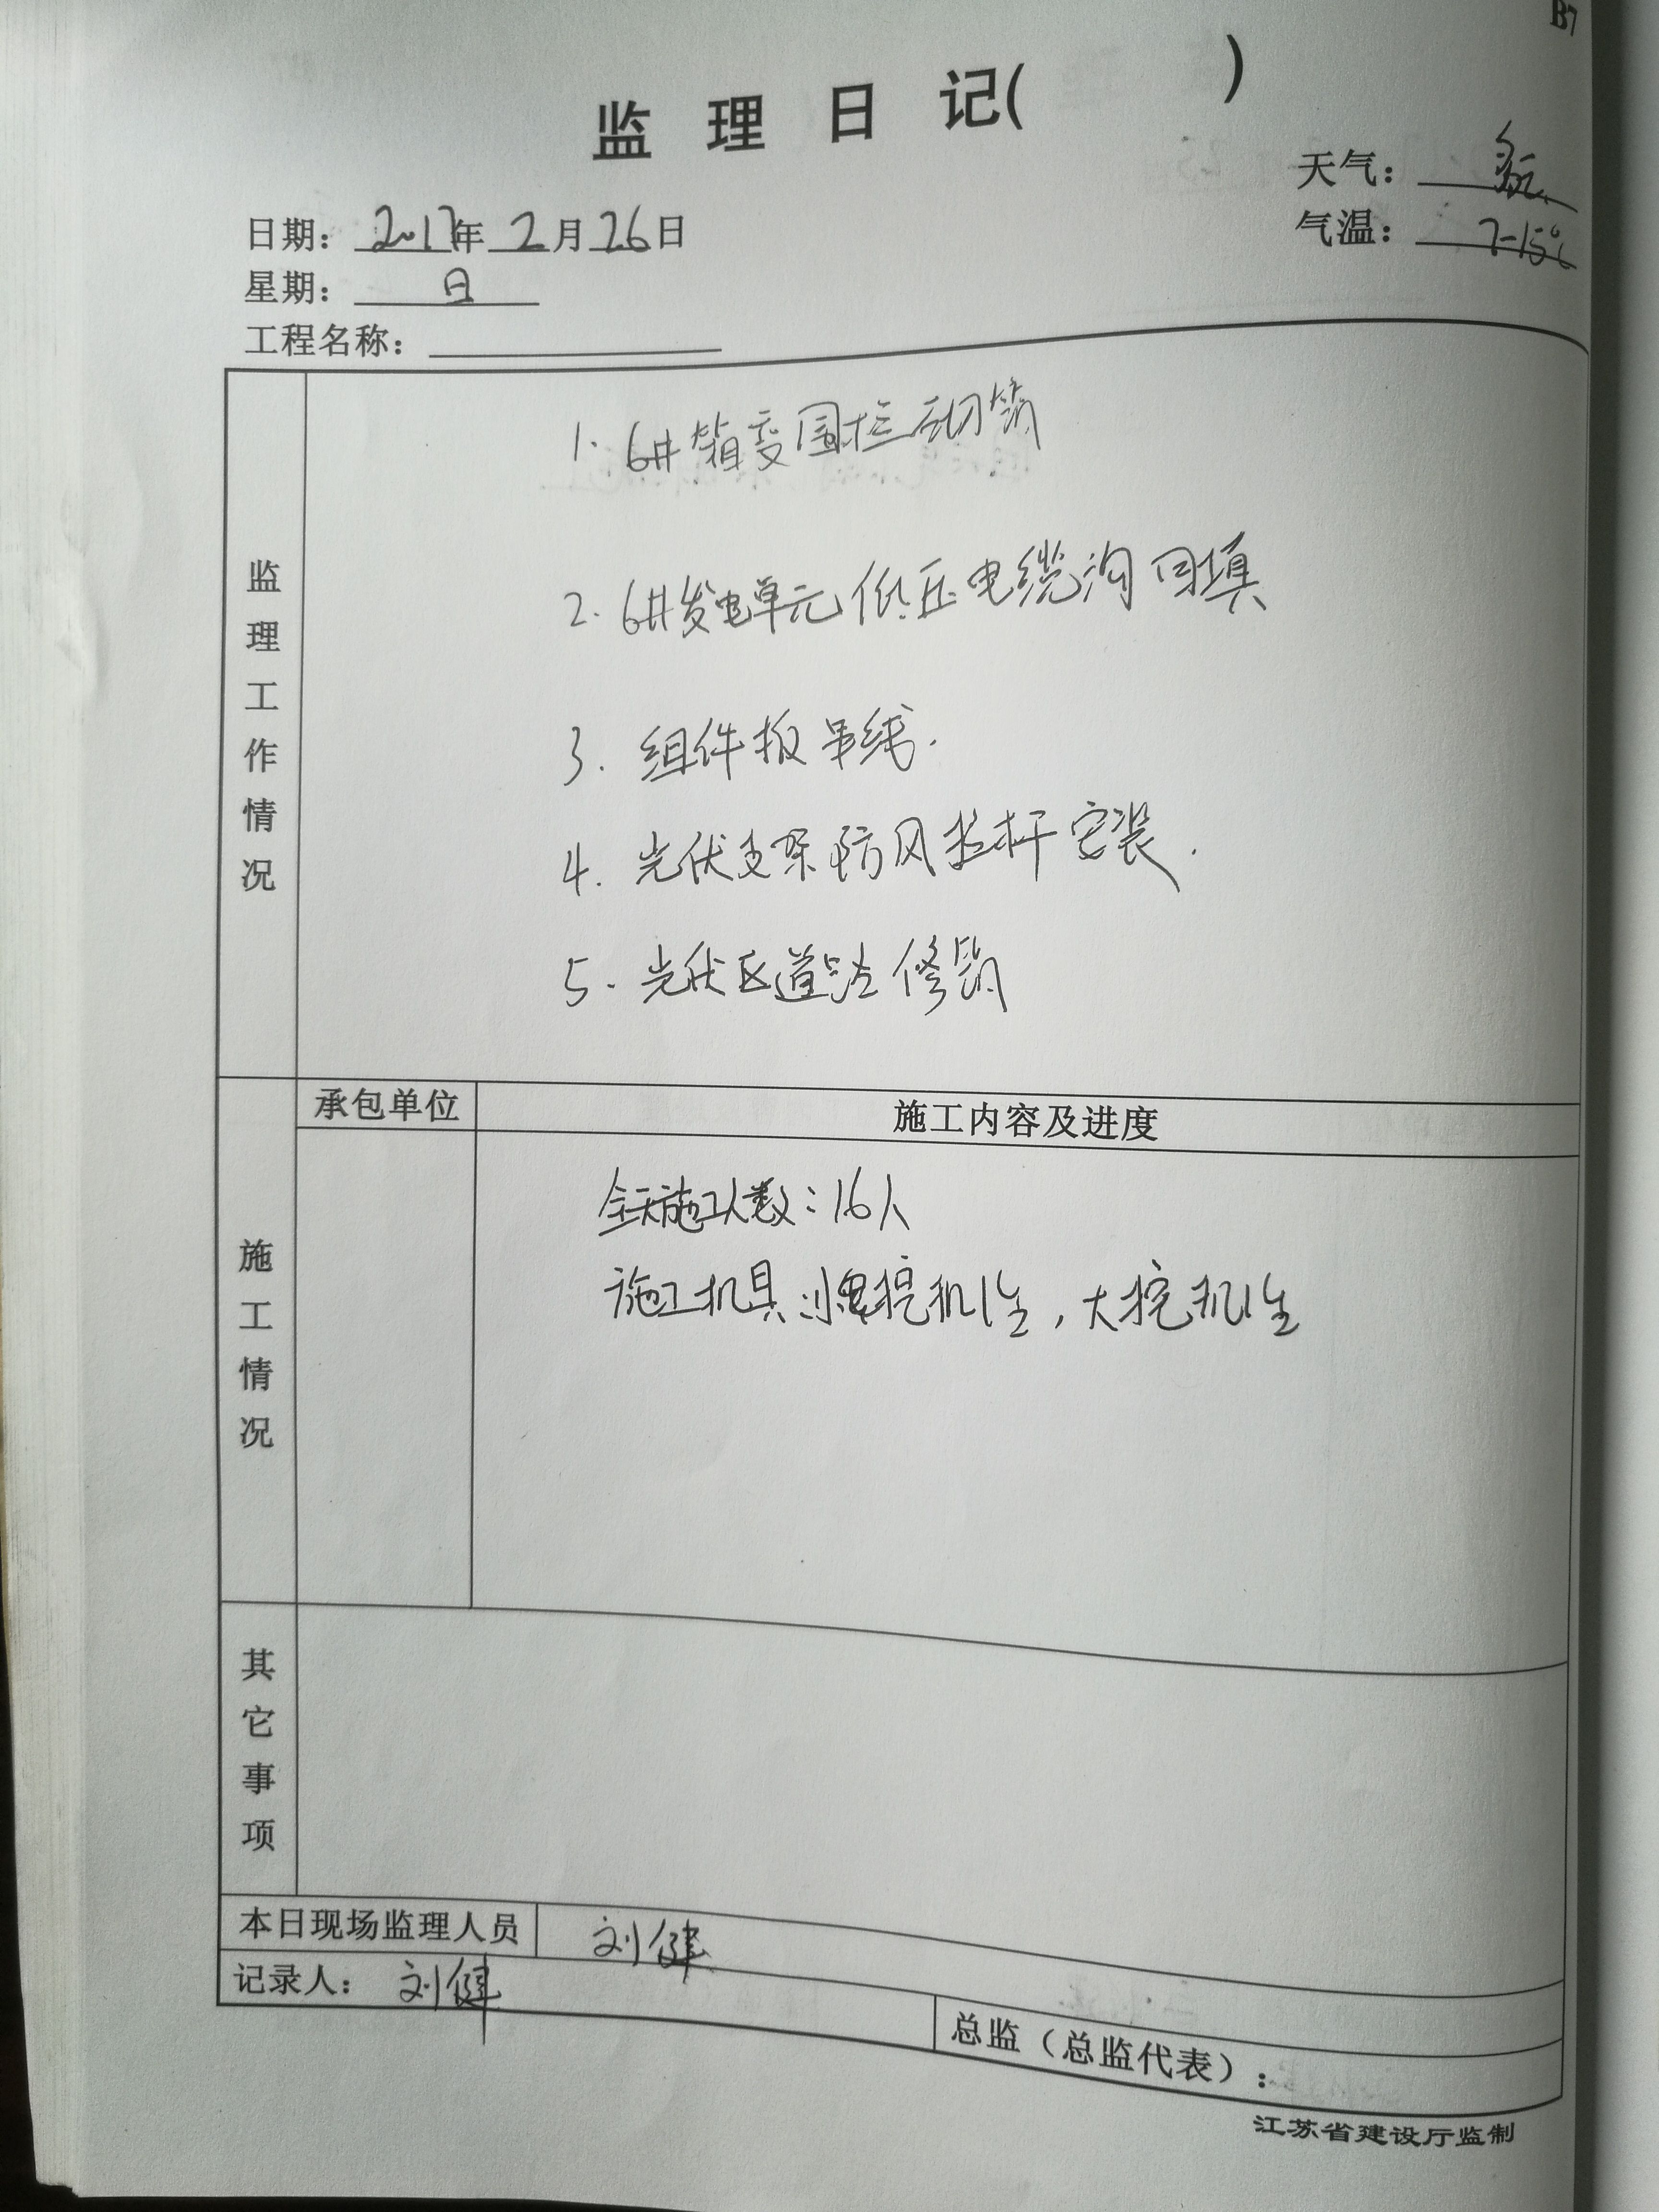 B7
监 理 日 记( )
天气: 多云
气温: 7-15℃
日期: 2017年 2 月 26 日
星期: 日
工程名称:
监理工作情况
1. 6#箱变围栏砌筑
2. 6#发电单元低压电缆沟回填
3. 组件板串线.
4. 光伏支架防风拉杆安装.
5. 光伏区道路修筑
施工情况
承包单位 施工内容及进度
全天施工人数:16人
施工机具:小挖机1台,大挖机1台
其它事项
本日现场监理人员 刘健
记录人: 刘健
总监(总监代表):
江苏省建设厅监制